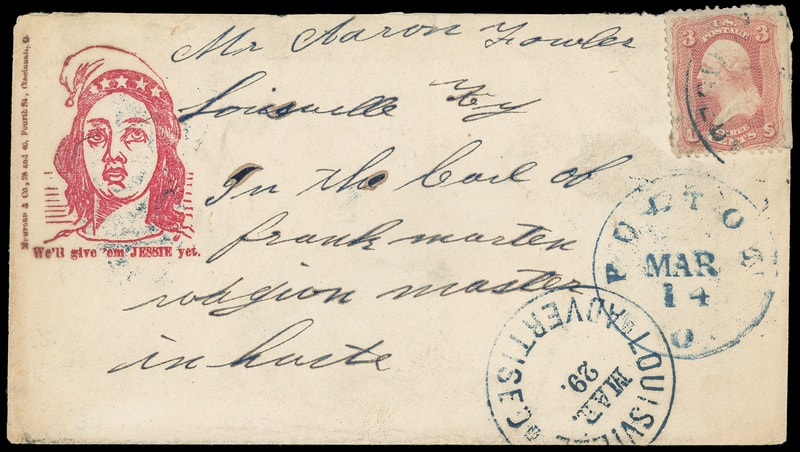 Mr Aaron Fowler
Louisville Ky
In the Cail of
frank marten
wagion master
in haste
We'll give 'em JESSIE yet.
Mumford & Co., 38 and 40, Fourth St., Cincinnati, O.
3 U.S. 3
POSTAGE
U S
CENTS
POLTOS
MAR
14
O
LOUISVILLE KY
ADVERTISED
MAR.
29.